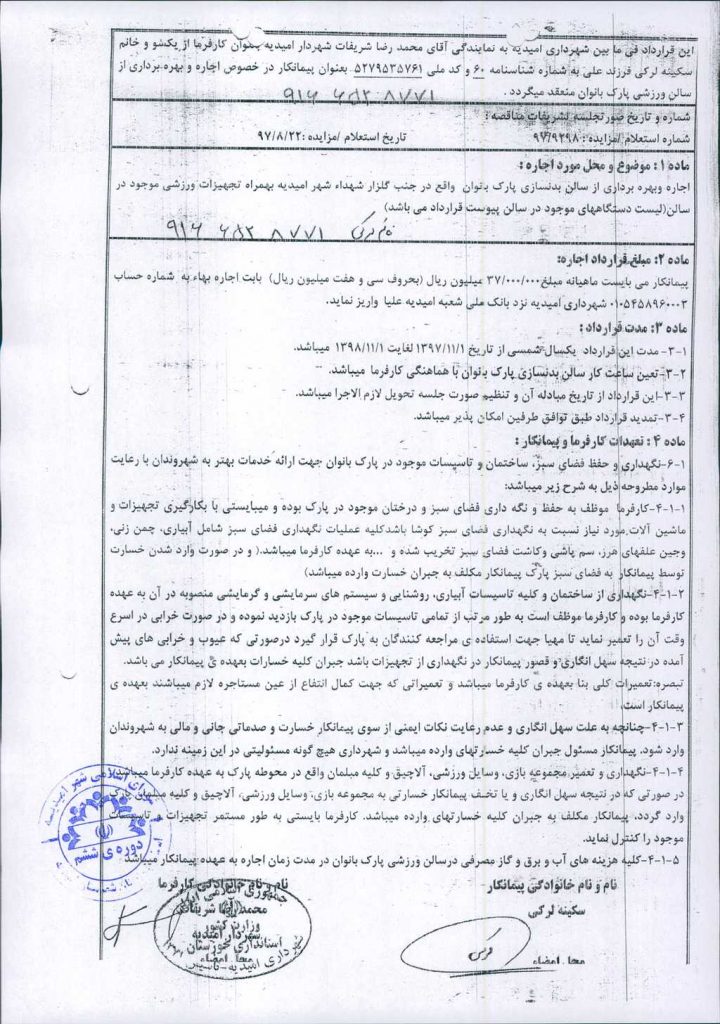 این قرارداد فی ما بین شهرداری امیدیه به نمایندگی آقای محمد رضا شریفات شهردار امیدیه بعنوان کارفرما از یکسو و خانم
سکینه لرکی فرزند علی به شماره شناسنامه ۶۰ و کد ملی ۵۲۷۹۵۳۵۷۶۱ بعنوان پیمانکار در خصوص اجاره و بهره برداری از
سالن ورزشی پارک بانوان منعقد میگردد .
شماره و تاریخ صورتجلسه تشریفات مناقصه :
شماره استعلام /مزایده : ۹۷/۹۲۹۸ تاریخ استعلام /مزایده :۹۷/۸/۲۲
ماده ۱: موضوع و محل مورد اجاره :
اجاره وبهره برداری از سالن بدنسازی پارک بانوان واقع در جنب گلزار شهداء شهر امیدیه بهمراه تجهیزات ورزشی موجود در
سالن(لیست دستگاههای موجود در سالن پیوست قرارداد می باشد)
ماده ۲: مبلغ قرارداد اجاره:
پیمانکار می بایست ماهیانه مبلغ۳۷/۰۰۰/۰۰۰ میلیون ریال (بحروف سی و هفت میلیون ریال) بابت اجاره بهاء به شماره حساب
۰۱۰۵۴۵۸۹۶۰۰۰۳ شهرداری امیدیه نزد بانک ملی شعبه امیدیه علیا واریز نماید.
ماده ۳: مدت قرارداد :
۳-۱- مدت این قرارداد یکسال شمسی از تاریخ ۱۳۹۷/۱۱/۱ لغایت ۱۳۹۸/۱۱/۱ میباشد.
۳-۲- تعین ساعت کار سالن بدنسازی پارک بانوان با هماهنگی کارفرما میباشد.
۳-۳-این قرارداد از تاریخ مبادله آن و تنظیم صورت جلسه تحویل لازم الاجرا میباشد.
۳-۴-تمدید قرارداد طبق توافق طرفین امکان پذیر میباشد.
ماده ۴ : تعهدات کارفرما و پیمانکار :
۶-۱-نگهداری و حفظ فضای سبز، ساختمان و تاسیسات موجود در پارک بانوان جهت ارائه خدمات بهتر به شهروندان با رعایت
موارد مطروحه ذیل به شرح زیر میباشد:
۴-۱-۱-کارفرما موظف به حفظ و نگه داری فضای سبز و درختان موجود در پارک بوده و میبایستی با بکارگیری تجهیزات و
ماشین آلات مورد نیاز نسبت به نگهداری فضای سبز کوشا باشد کلیه عملیات نگهداری فضای سبز شامل آبیاری، چمن زنی،
وجین علفهای هرز، سم پاشی وکاشت فضای سبز تخریب شده و ...به عهده کارفرما میباشد.( و در صورت وارد شدن خسارت
توسط پیمانکار به فضای سبز پارک پیمانکار مکلف به جبران خسارت وارده میباشد)
۴-۱-۲-نگهداری از ساختمان و کلیه تاسیسات آبیاری، روشنایی و سیستم های سرمایشی و گرمایشی منصوبه در آن به عهده
کارفرما بوده و کارفرما موظف است به طور مرتب از تمامی تاسیسات موجود در پارک بازدید نموده و در صورت خرابی در اسرع
وقت آن را تعمیر نماید تا مهیا جهت استفاده ی مراجعه کنندگان به پارک قرار گیرد درصورتی که عیوب و خرابی های پیش
آمده در نتیجه سهل انگاری و قصور پیمانکار در نگهداری از تجهیزات باشد جبران کلیه خسارات بعهده ی پیمانکار می باشد.
تبصره:تعمیرات کلی بنا بعهده ی کارفرما میباشد و تعمیراتی که جهت کمال انتفاع از عین مستاجره لازم میباشند بعهده ی
پیمانکار است.
۴-۱-۳-چنانچه به علت سهل انگاری و عدم رعایت نکات ایمنی از سوی پیمانکار خسارت و صدماتی جانی و مالی به شهروندان
وارد شود، پیمانکار مسئول جبران کلیه خسارتهای وارده میباشد و شهرداری هیچ گونه مسئولیتی در این زمینه ندارد.
۴-۱-۴-نگهداری و تعمیر مجموعه بازی، وسایل ورزشی، آلاچیق و کلیه مبلمان واقع در محوطه پارک به عهده کارفرما میباشد
در صورتی که در نتیجه سهل انگاری و یا تخلف پیمانکار خسارتی به مجموعه بازی، وسایل ورزشی، آلاچیق و کلیه مبلمان پارک
وارد گردد، پیمانکار مکلف به جبران کلیه خسارتهای وارده میباشد. کارفرما بایستی به طور مستمر تجهیزات و تاسیسات
موجود را کنترل نماید.
۴-۱-۵-کلیه هزینه های آب و برق و گاز مصرفی درسالن ورزشی پارک بانوان در مدت زمان اجاره به عهده پیمانکار میباشد
نام و نام خانوادگی پیمانکار نام و نام خانوادگی کارفرما
سکینه لرکی محمد رضا شریفات
شهردار امیدیه
محل امضاء محل امضاء
جمهوری اسلامی ایران
وزارت کشور
استانداری خوزستان
دوره ی ششم